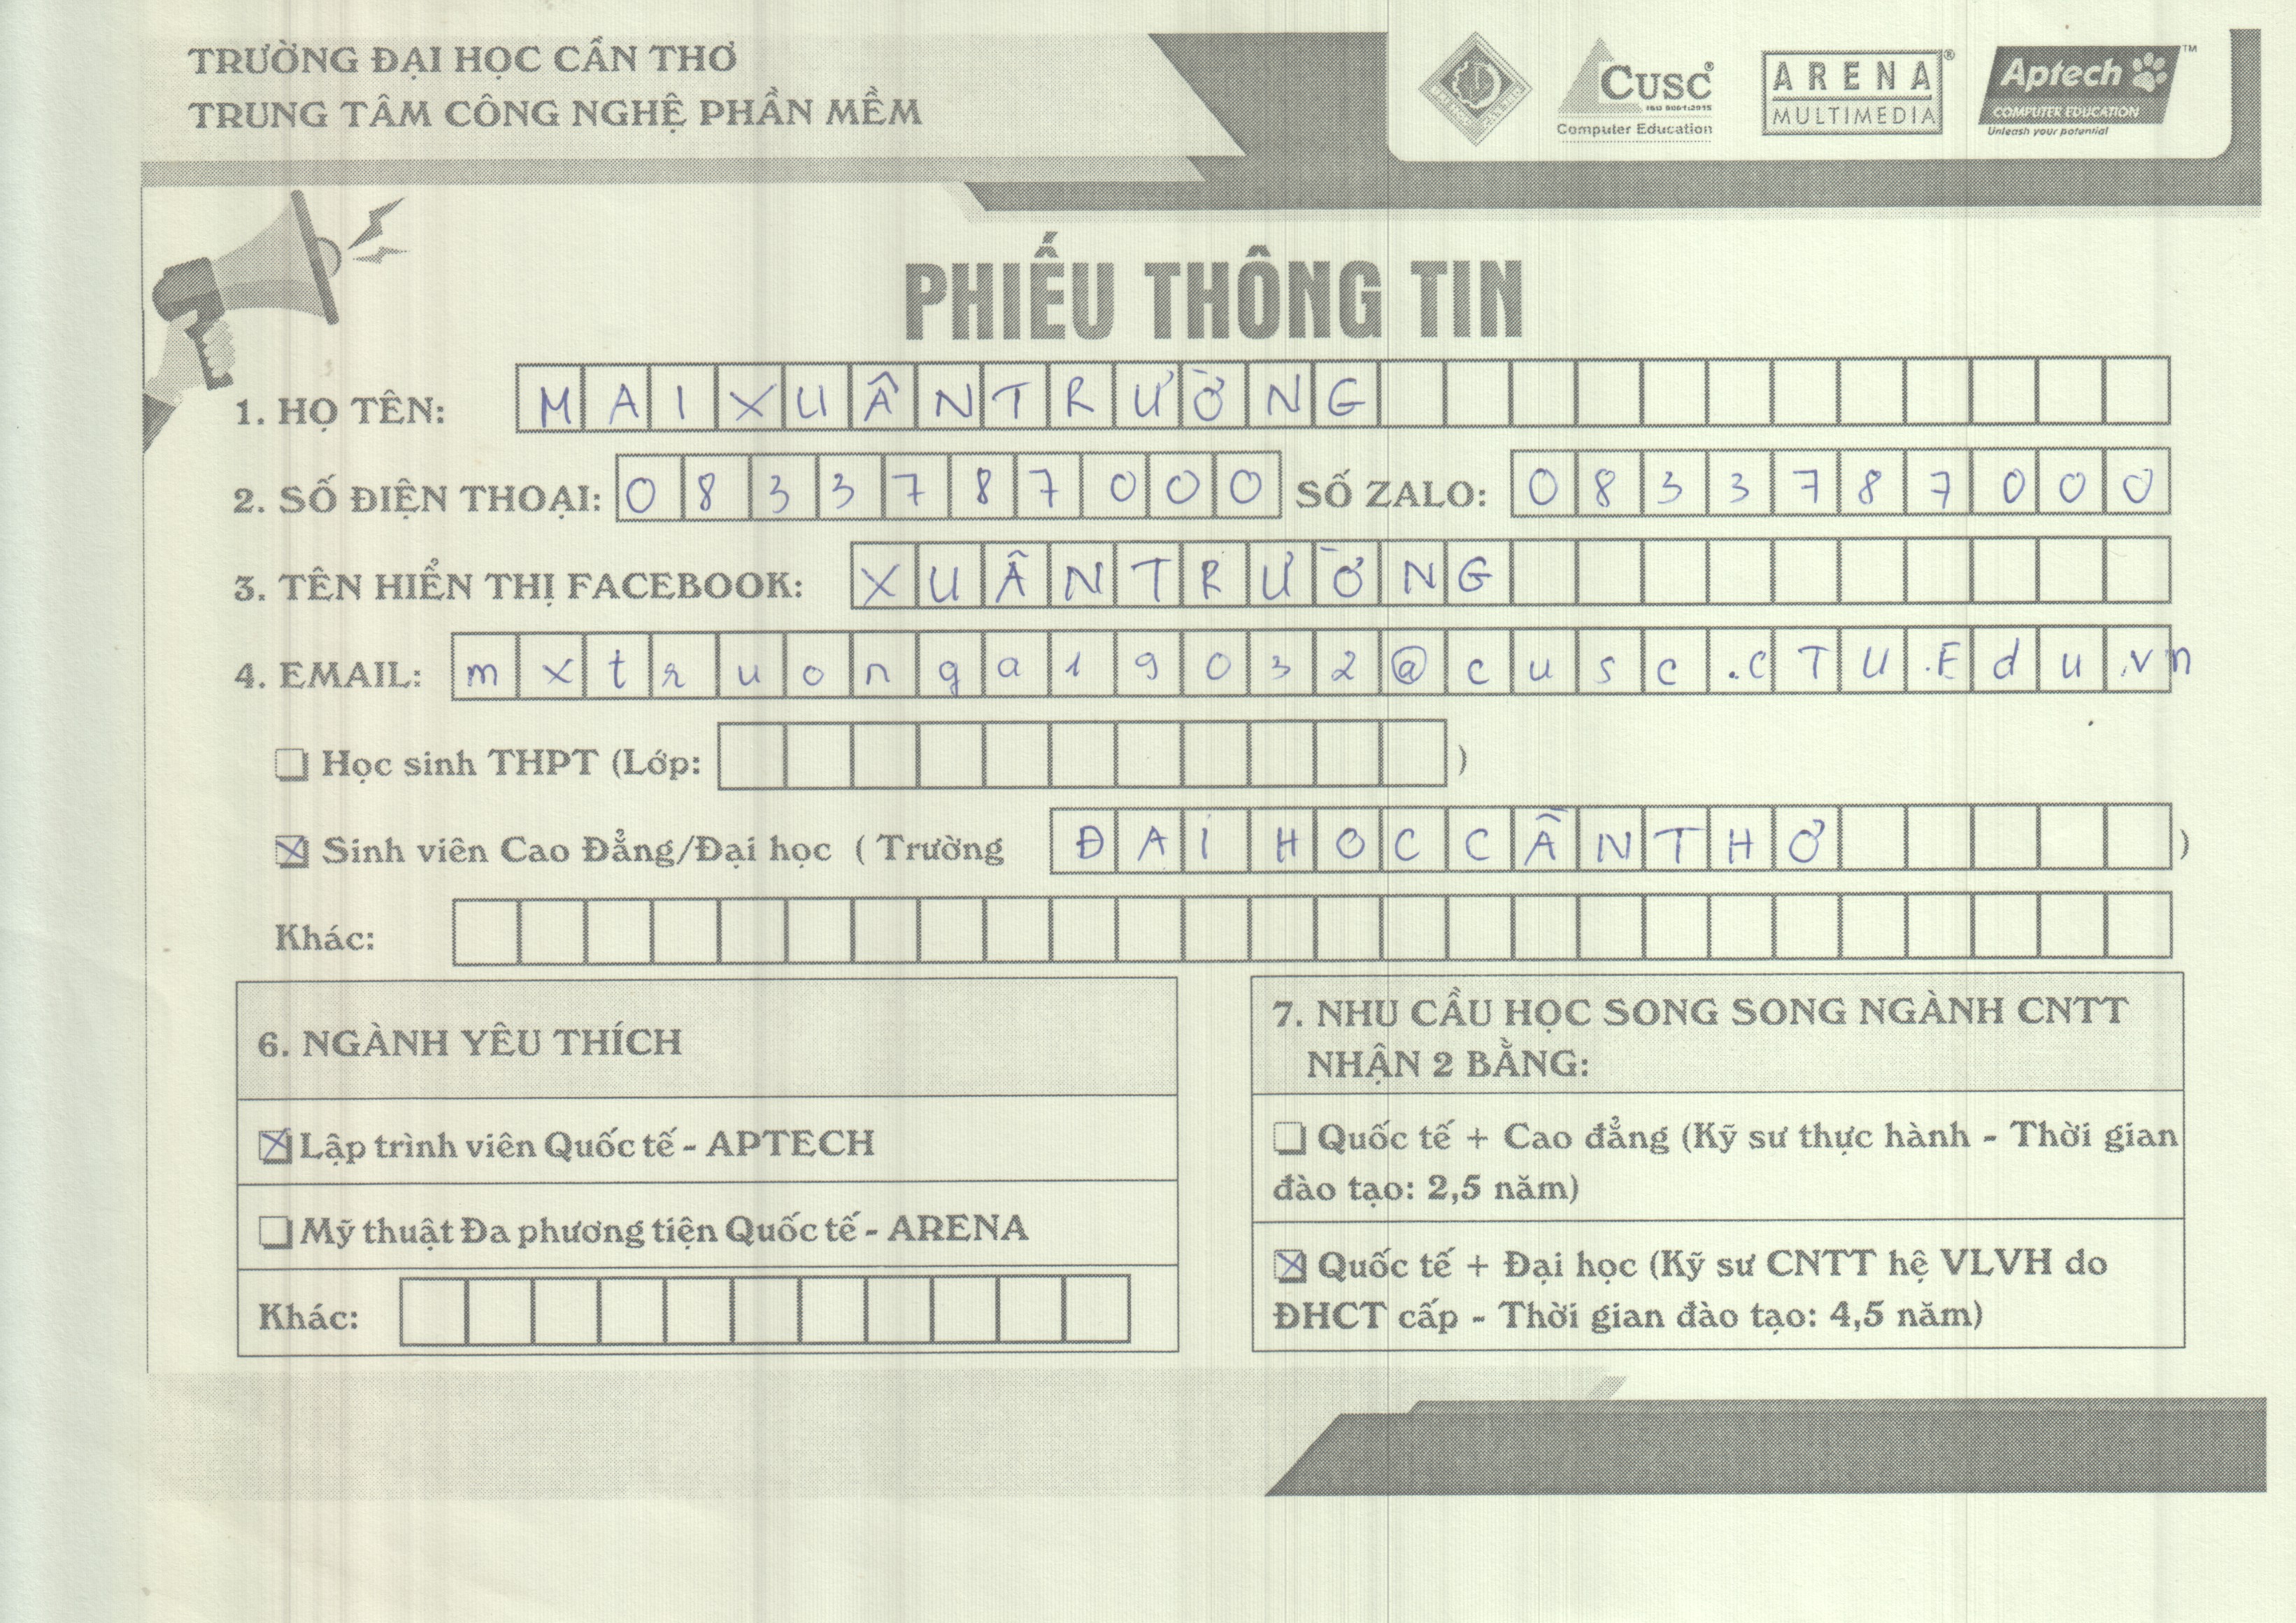 TRƯỜNG ĐẠI HỌC CẦN THƠ
TRUNG TÂM CÔNG NGHỆ PHẦN MỀM
CUSC®
ISO 9001:2015
Computer Education
ARENA®
MULTIMEDIA
Aptech™
COMPUTER EDUCATION
Unleash your potential
PHIẾU THÔNG TIN
1. HỌ TÊN: MAI XUÂN TRƯỜNG
2. SỐ ĐIỆN THOẠI: 0833787000 SỐ ZALO: 0833787000
3. TÊN HIỂN THỊ FACEBOOK: XUÂN TRƯỜNG
4. EMAIL: mxtruonga19032@cusc.cTU.Edu.vn
Học sinh THPT (Lớp: )
Sinh viên Cao Đẳng/Đại học ( Trường ĐAI HOC CẦN THƠ )
Khác:
6. NGÀNH YÊU THÍCH
Lập trình viên Quốc tế - APTECH
Mỹ thuật Đa phương tiện Quốc tế - ARENA
Khác:
7. NHU CẦU HỌC SONG SONG NGÀNH CNTT
NHẬN 2 BẰNG:
Quốc tế + Cao đẳng (Kỹ sư thực hành - Thời gian
đào tạo: 2,5 năm)
Quốc tế + Đại học (Kỹ sư CNTT hệ VLVH do
ĐHCT cấp - Thời gian đào tạo: 4,5 năm)